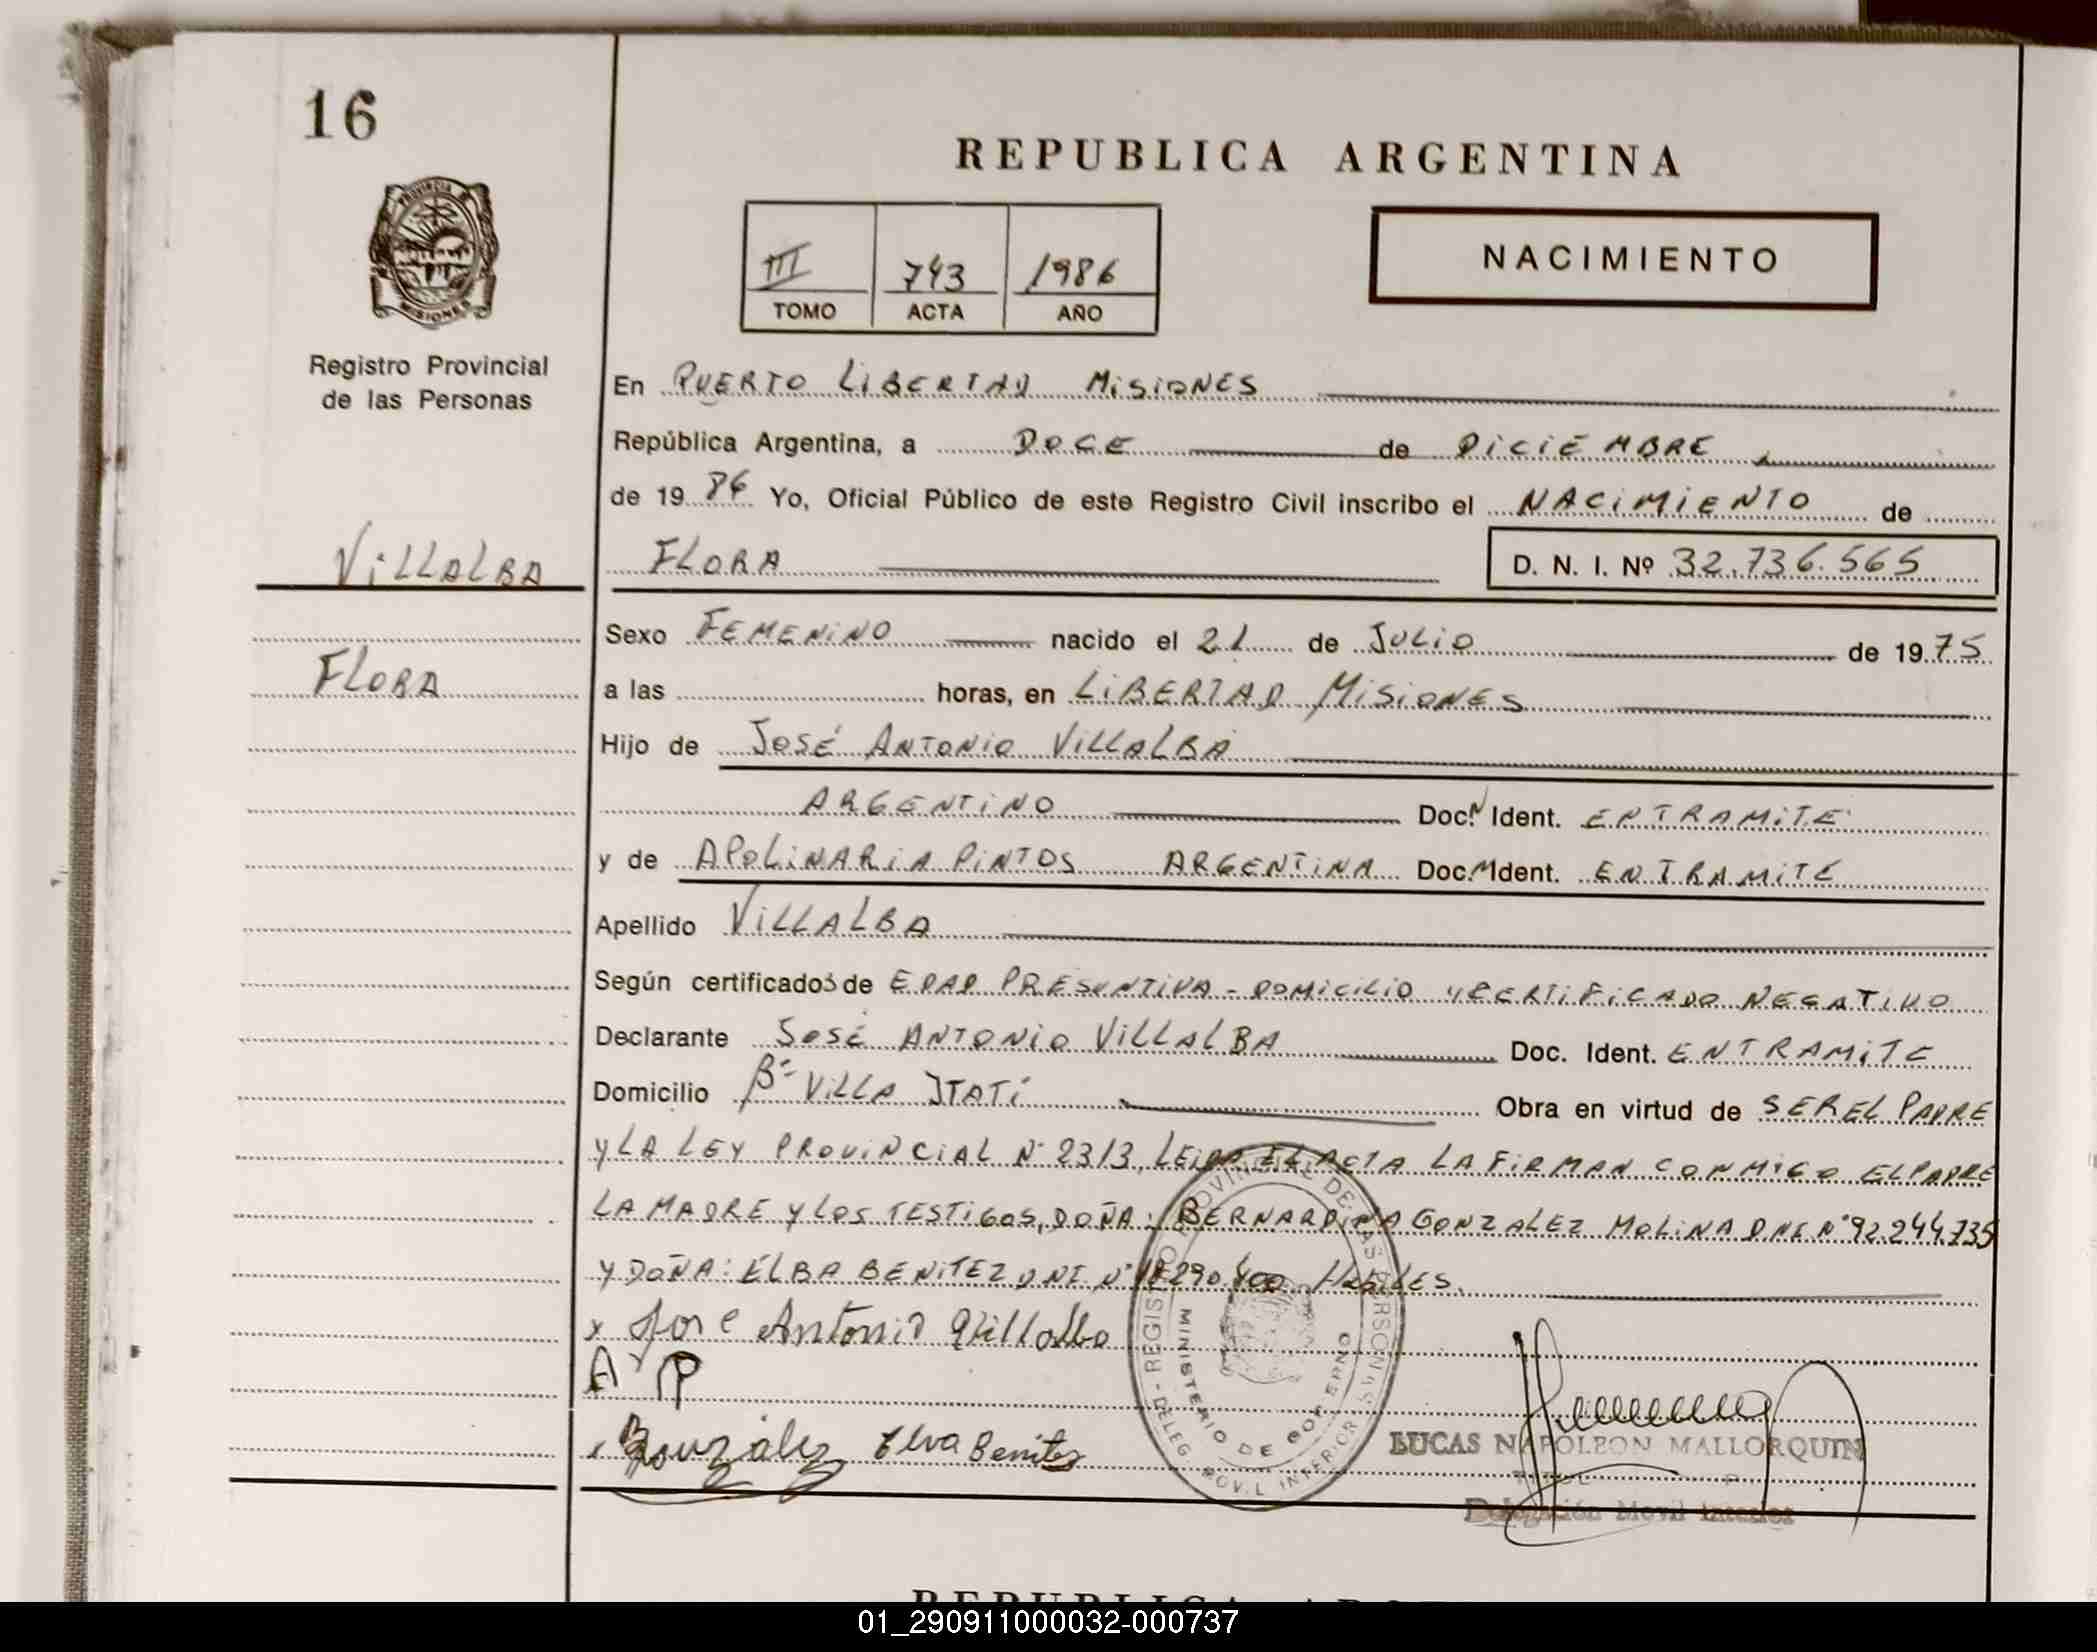 16
REPUBLICA ARGENTINA
PROVINCIA
MISIONES
III 743 1986
TOMO ACTA AÑO
NACIMIENTO
Registro Provincial
de las Personas
En PUERTO LIBERTAD MISIONES
República Argentina, a DOCE de DICIEMBRE
de 1986 Yo, Oficial Público de este Registro Civil inscribo el NACIMIENTO de
VILLALBA
FLORA D. N. I. Nº 32.736.565
Sexo FEMENINO nacido el 21 de JULIO de 1975
FLORA
a las horas, en LIBERTAD MISIONES
Hijo de JOSÉ ANTONIO VILLALBA
ARGENTINO Doc. Ident. EN TRAMITE
y de APOLINARIA PINTOS ARGENTINA Doc. Ident. EN TRAMITE
Apellido VILLALBA
Según certificados de EDAD PRESUNTIVA - DOMICILIO Y CERTIFICADO NEGATIVO
Declarante JOSÉ ANTONIO VILLALBA Doc. Ident. EN TRAMITE
Domicilio Bº VILLA ITATÍ Obra en virtud de SER EL PADRE
Y LA LEY PROVINCIAL Nº 2313, LEIDA EL ACTA LA FIRMAN CONMIGO EL PADRE
LA MADRE Y LOS TESTIGOS, DOÑA: BERNARDINA GONZALEZ MOLINA DNI Nº 92.244.735
Y DOÑA: ELBA BENITEZ DNI Nº 290.400 HABILES.
x Jose Antonio Villalba
A P
x González Elva Benitez
REGISTRO PROVINCIAL DE LAS PERSONAS
MINISTERIO DE GOBIERNO
DELEG. MOVIL INTERIOR
LUCAS NAPOLEON MALLORQUIN
Delegación Movil Interior
01_290911000032-000737